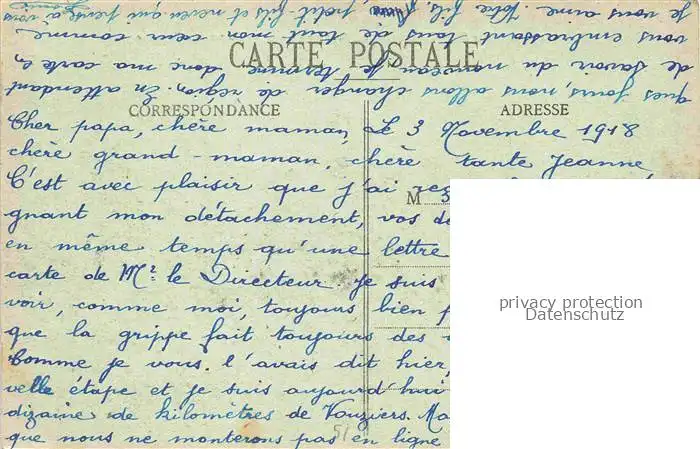 CARTE POSTALE
CORRESPONDANCE
ADRESSE
M
Le 3 Novembre 1918
Cher papa, chère maman,
chère grand-maman, chère tante Jeanne,
C'est avec plaisir que j'ai
gnant mon détachement, vos
en même temps qu'une lettre
carte de Mr. le Directeur. Je suis
voir, comme moi, toujours bien
que la grippe fait toujours des
Comme je vous l'avais dit hier,
velle étape et je suis aujourd'hui
dizaine de kilomètres de Vouziers.
que nous ne monterons pas en ligne
ques jours, nous allons changer de région. En attendant
de savoir du nouveau, je termine donc ma carte,
vous embrassant tous de tout mon cœur comme
je vous aime. Votre fils, petit fils et neveu qui pense à vous
51
privacy protection
Datenschutz